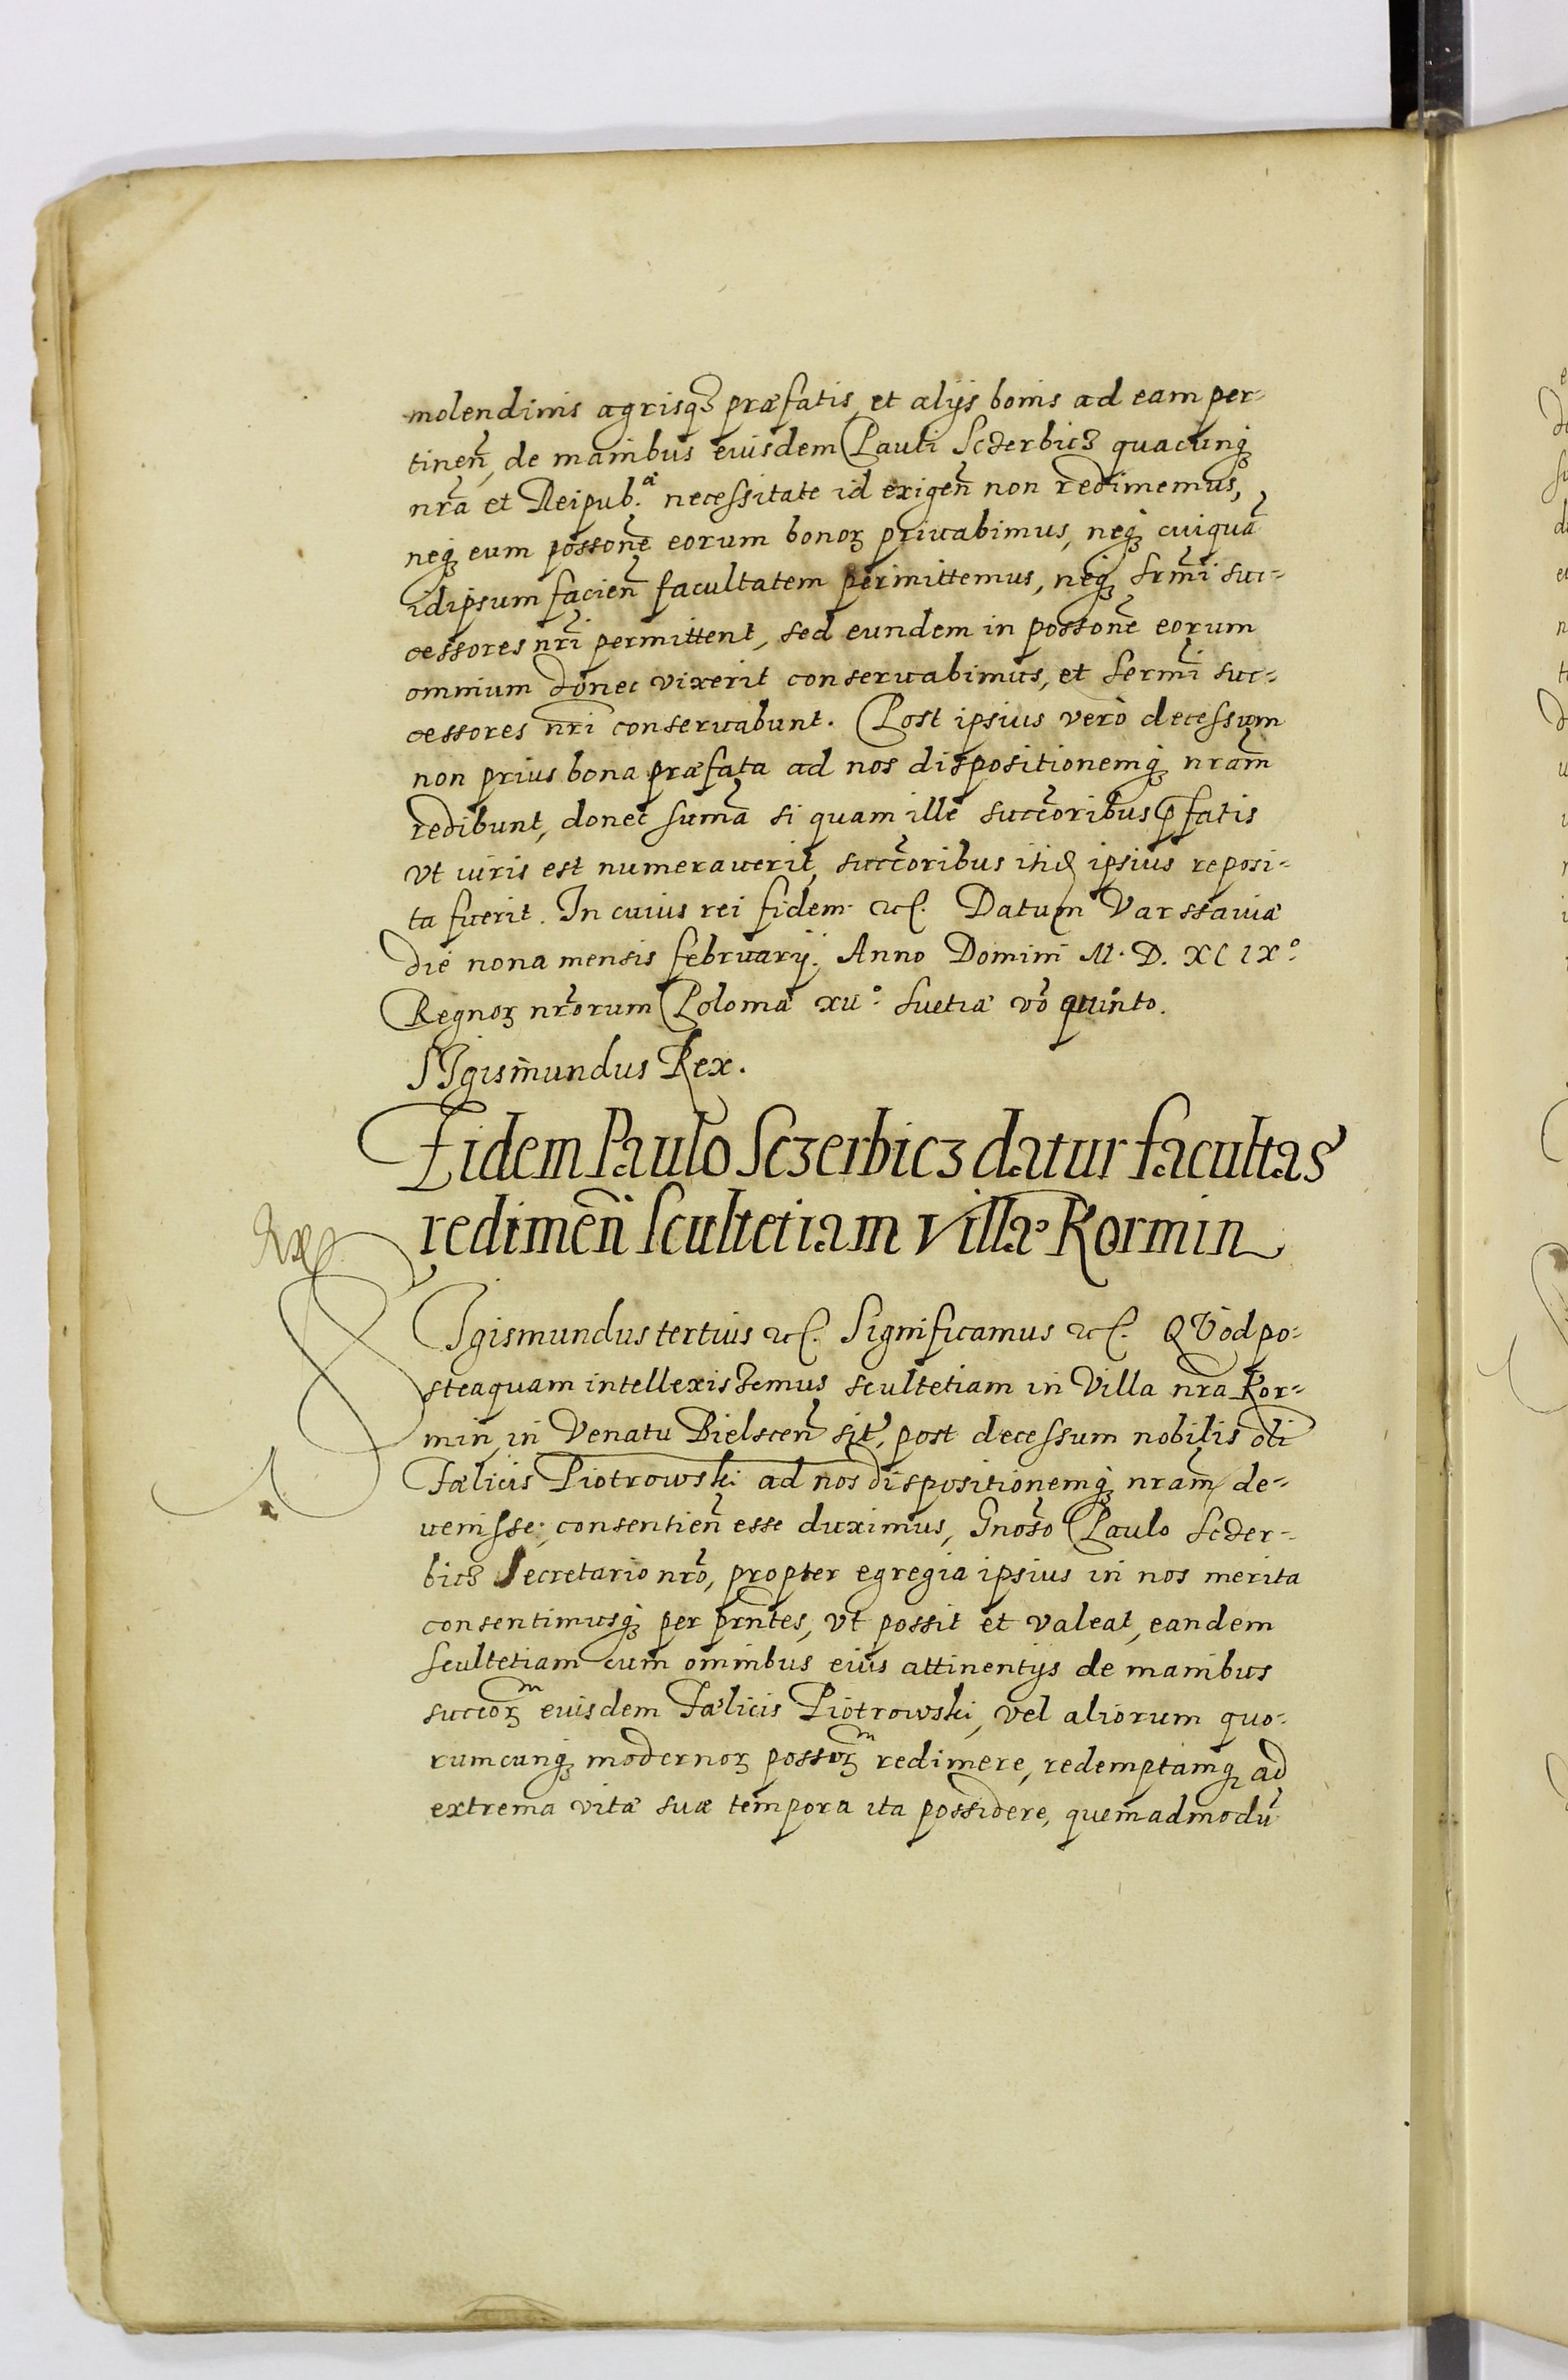 molendinis agrisqꜗ præfatis, et alijs bonis ad eam per-
tinen̄, de manibus eiusdem Pauli Sczerbicz quacunqꜗ
nrã et Reipub.æ necessitate id exigen̄ non redimemus,
neqꜗ eum possonẽ eorum bonoꝝ priuabimus, neqꜗ cuiquã
idipsum facien̄ facultatem permittemus, neqꜗ srm̃i suc-
cessores nrĩ permittent, sed eundem in possonẽ eorum
omnium donec vixerit conseruabimus, et serm̃i suc-
cessores nrĩ conseruabunt. Post ipsius verò decessum
non prius bona præfata ad nos dispositionemqꜗ nram̃
redibunt, donec sumã si quam ille succõribus p̃fatis
vt iuris est numerauerit, succõribus itid ipsius reposi-
ta fuerit. In cuius rei fidem ꝛc. Datum Varssauiæ
die nona mensis februarij. Anno Domini M. D. XC IX.o
Regnoꝝ nrõrum Poloniæ xii.o Suetiæ võ quinto.
SIgismundus Rex.
Eidem Paulo Sczerbicz datur facultas
redimen̄i scultetiam villæ Kormin
SIgismundus tertius ꝛc. Significamus ꝛc. QVòd po-
steaquam intellexissemus scultetiam in Villa nrã Kor-
min, in Venatu Bielscen̄ sit̃, post decessum nobilis oli
Fælicis Piotrowski ad nos dispositionemqꜗ nram̃ de-
uenisse; consentien̄ esse duximus, Gnoso Paulo Sczer-
bicz Secretario nrõ, propter egregia ipsius in nos merita
consentimusqꜗ per prñtes, vt possit et valeat, eandem
scultetiam cum omnibus eius attinentijs de manibus
succoꝝm eiusdem Fælicis Piotrowski, vel aliorum quo-
rumcunqꜗ modernoꝝ possoꝝm redimere, redemptamqꜗ ad
extrema vitæ suæ tempora ita possidere, quemadmodũ